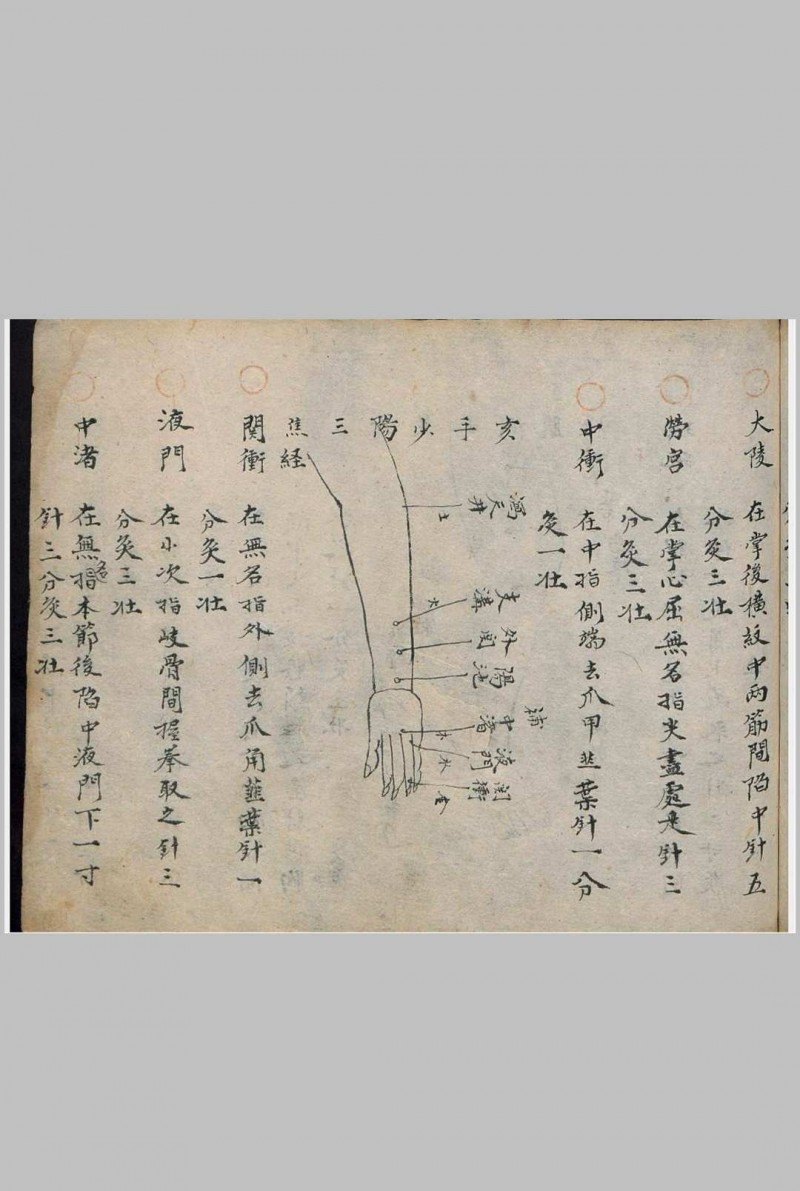 大陵
在掌後横紋中两筋間陷中針五
分灸三壮
勞宮
在掌心屈無名指尖盡處是針三
分灸三壮
中衝
在中指側端去爪甲韭葉針一分
灸一壮
亥手少陽三焦経
瀉天井
土
支溝
火
外関
陽池
補中渚
木
液門
水
関衝
金
関衝
在無名指外側去爪角韮葉針一
分灸一壮
液門
在小次指岐骨間握拳取之針三
分灸三壮
中渚
在無名指本節後陷中液門下一寸
針三分灸三壮